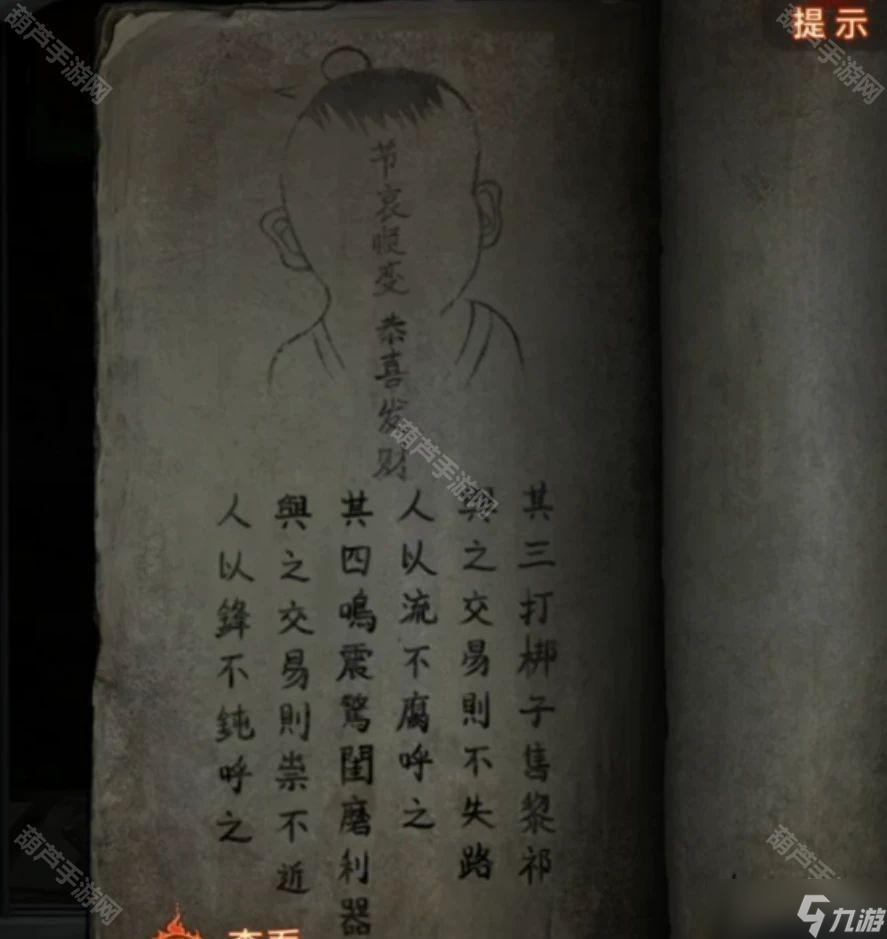 提示
节哀顺变 恭喜发财
其三打梆子售黎祁
與之交易則不失路
人以流不腐呼之
其四鳴震驚閨磨利器
與之交易則祟不近
人以鋒不鈍呼之
查看
葫芦手游网
葫芦手游网
葫芦手游网
葫芦手游网
葫芦手游网
九游